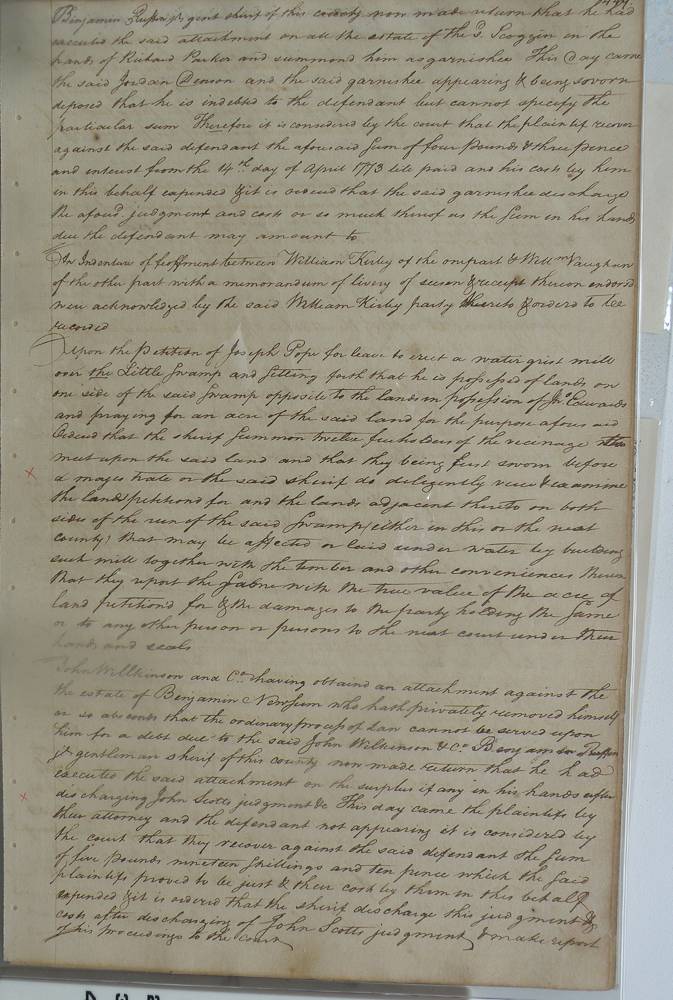 Benjamin Ruffin jr. gent sherif of this county now made return that he had
executed the said attachment on all the estate of the sd. Scoggin in the
hands of Richard Parker and summond him as garnishee This day came
the said Jordan Denson and the said garnishee appearing & being sworn
deposed that he is indebted to the defendant but cannot specify the
particular sum Therefore it is considered by the court that the plaintif recover
against the said defendant the aforesaid sum of four pounds & three pence
and interest from the 14th. day of April 1773 till paid and his costs by him
in this behalf expended & it is ordered that the said garnishee discharge
the aforsd. judgment and costs or so much thereof as the sum in his hands
due the defendant may amount to
An Indenture of feoffment between William Kirby of the one part & Willm. Vaughan
of the other part with a memorandum of livery of seisen & receipt thereon endorsd
were acknowledged by the said William Kirby party thereto & orderd to be
recorded
Upon the Petition of Joseph Pope for leave to erect a water grist mill
over the Little Swamp and setting forth that he is possessed of lands on
one side of the said Swamp opposite to the lands in possession of Jno. Edwards
and praying for an acre of the said land for the purpose afores aid
Ordered that the sherif summon twelve freeholders of the vecinage
meet upon the said land and that they being first sworn before
a magestrate or the said sherif do diligently view & examine
the lands petitiond for and the lands adjacent thereto on both
sides of the run of the said swamp (either in this or the next
county) that may be affected or laid under water by building
such mill together with the timber and other conveniences thereon
that they report the same with the true value of the acre of
land petitiond for & the damages to the party holding the same
or to any other person or persons to the next court under their
hands and seals
John Willkinson and Co. having obtaind an attachment against the
the estate of Benjamin Newsum who hath privately removed himself
or so absconds that the ordinary process of Law cannot be served upon
him for a debt due to the said John Wilkinson & Co. Benjamin Ruffin
jr. gentleman sherif of this county now made return that he had
executed the said attachment on the surplus if any in his hands after
discharging John Scotts judgment &c This day came the plaintifs by
their attorney and the defendant not appearing it is considered by
the court that they recover against the said defendant the sum
of five pounds nineteen shillings and ten pence which the said
plaintifs proved to be just & their costs by them in this behalf
expended & it is ordered that the sherif discharge this judgment &
costs after discharging of John Scotts judgment & make report
of his proceedings to the court